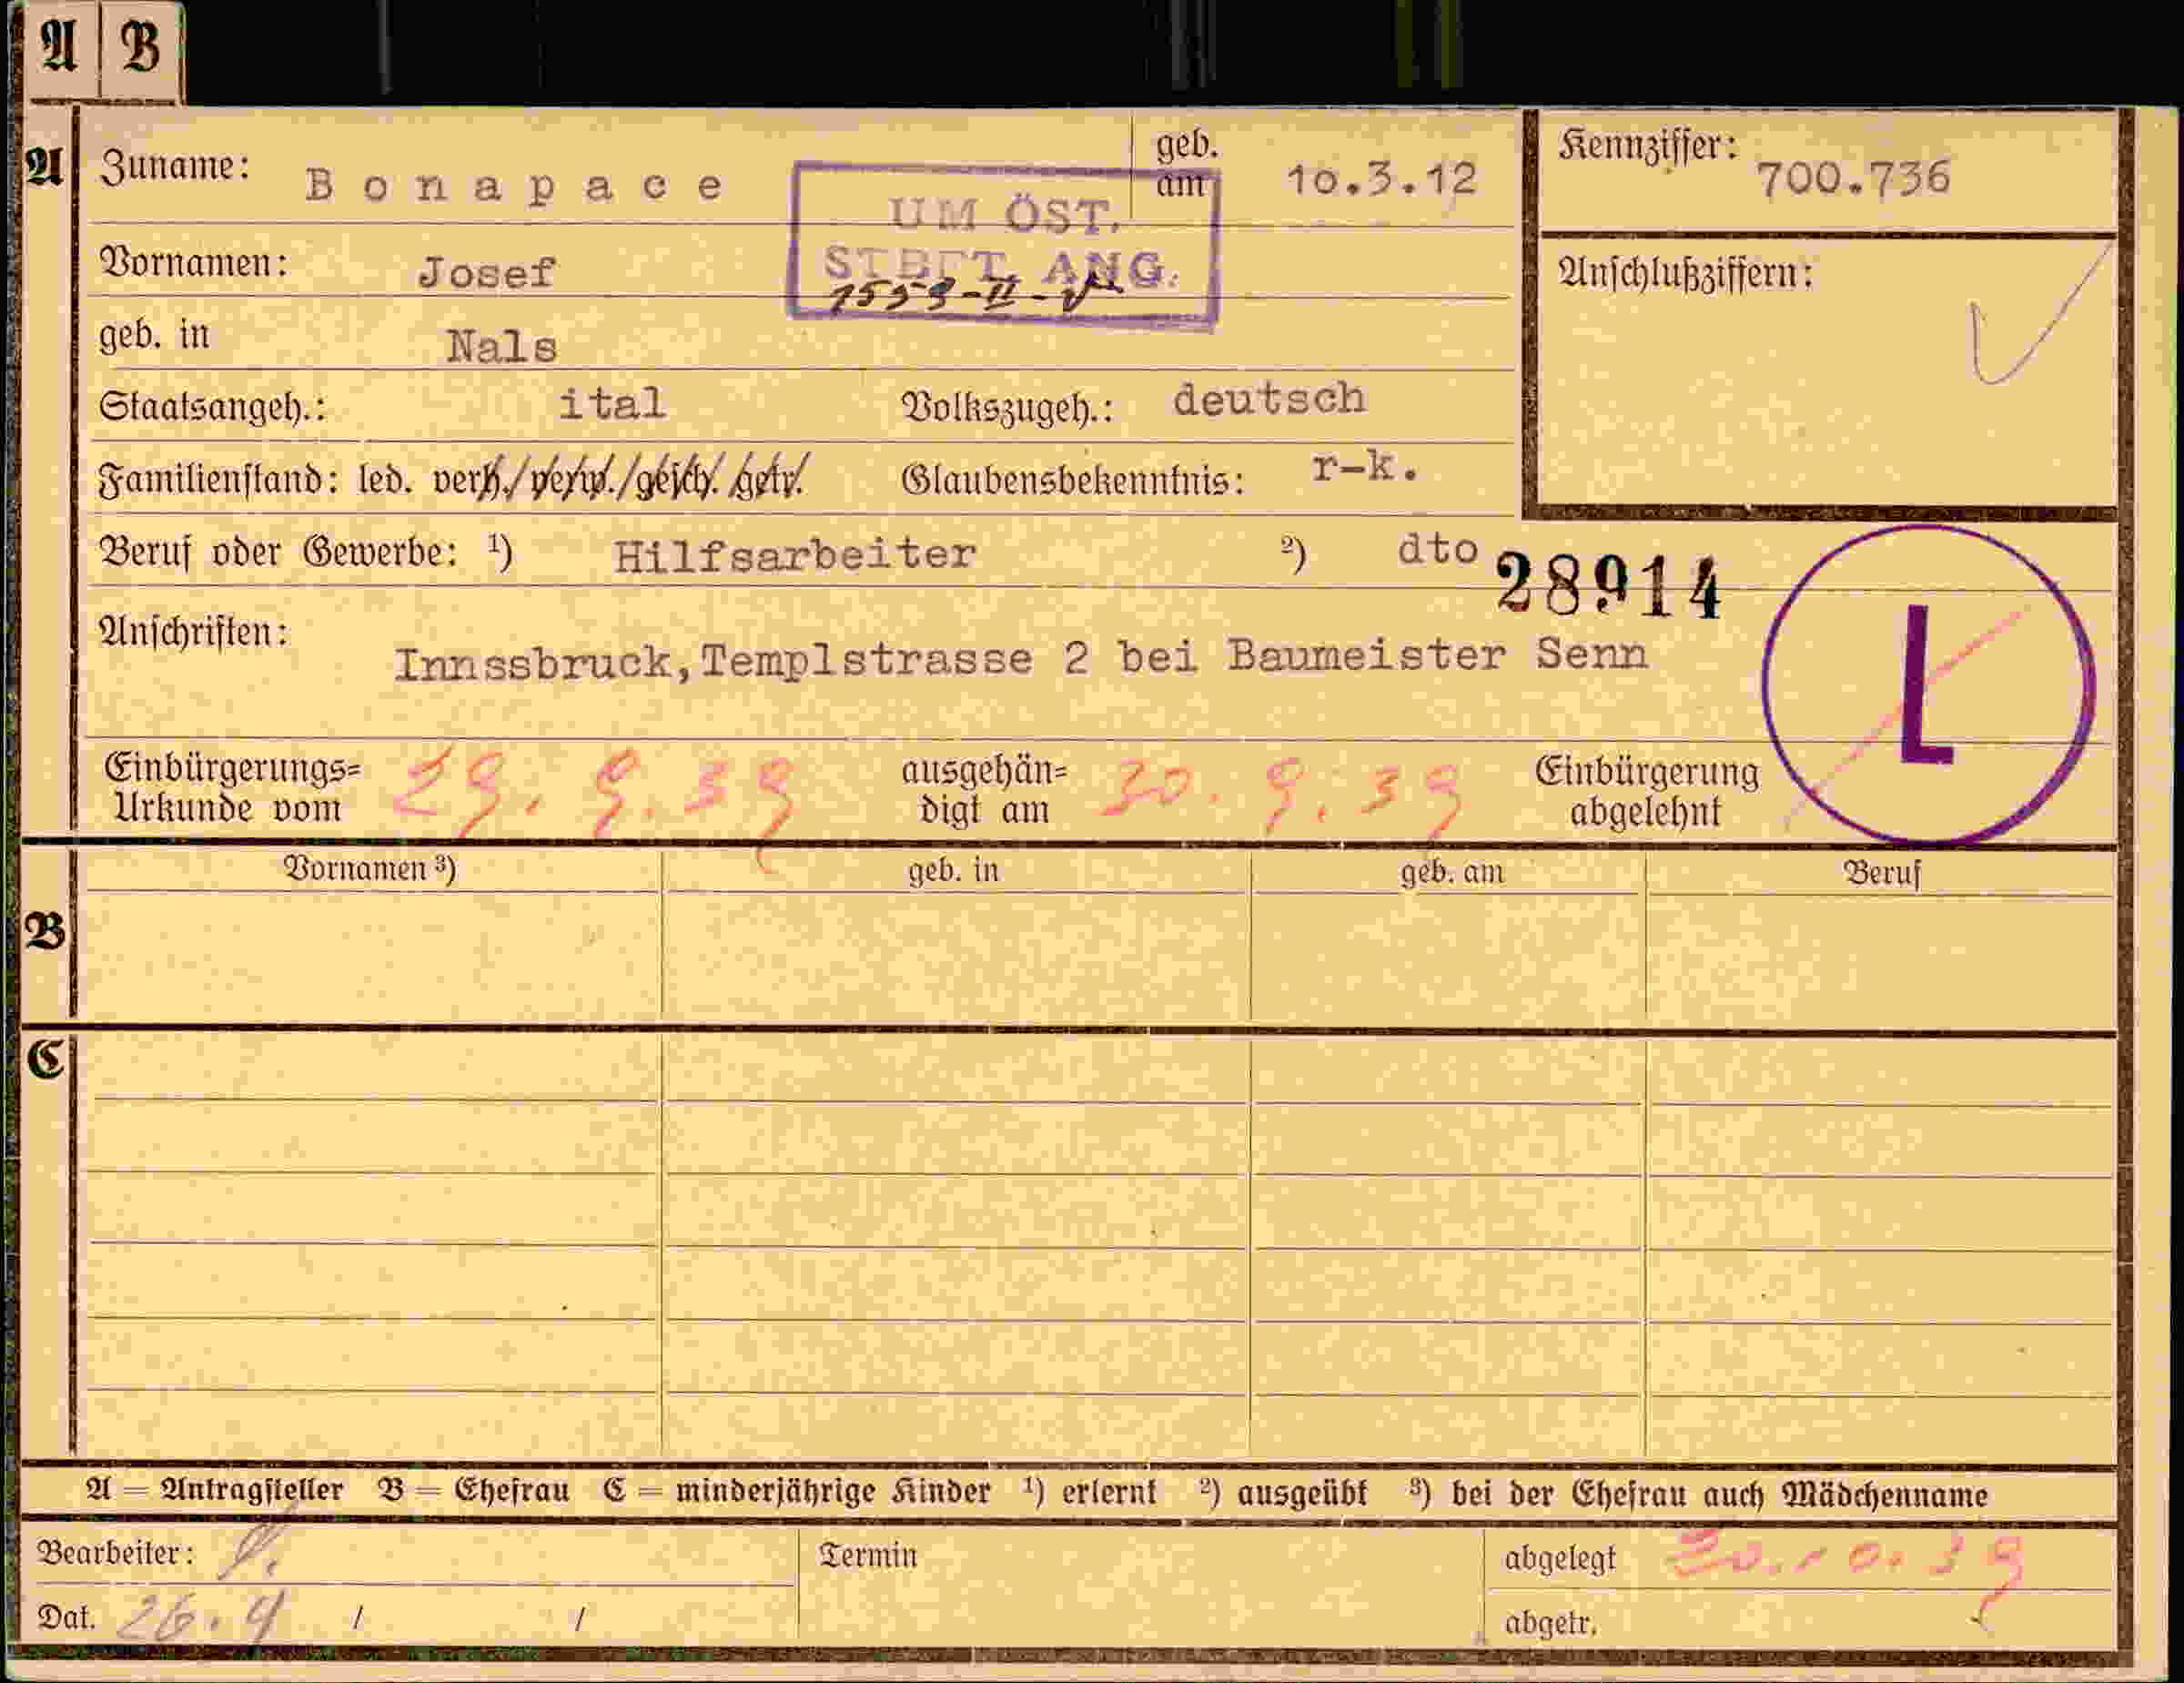 A B
A Zuname: Bonapace geb. am 10.3.12 Kennziffer: 700.736
UM ÖST.
STBFT. ANG.
Vornamen: Josef Anschlußziffern:
geb. in Nals
Staatsangeh.: ital Volkszugeh.: deutsch
Familienstand: led. verh./verw./gesch./getr. Glaubensbekenntnis: r-k.
Beruf oder Gewerbe: ¹) Hilfsarbeiter ²) dto
28914
Anschriften: Innssbruck,Templstrasse 2 bei Baumeister Senn
L
Einbürgerungs=Urkunde vom 29. 9. 39 ausgehän=digt am 30. 9. 39 Einbürgerung abgelehnt
Vornamen ³) geb. in geb. am Beruf
B
C
A = Antragsteller B = Ehefrau C = minderjährige Kinder ¹) erlernt ²) ausgeübt ³) bei der Ehefrau auch Mädchenname
Bearbeiter: Termin abgelegt 30.10.39
Dat. 26.9 / / abgetr.